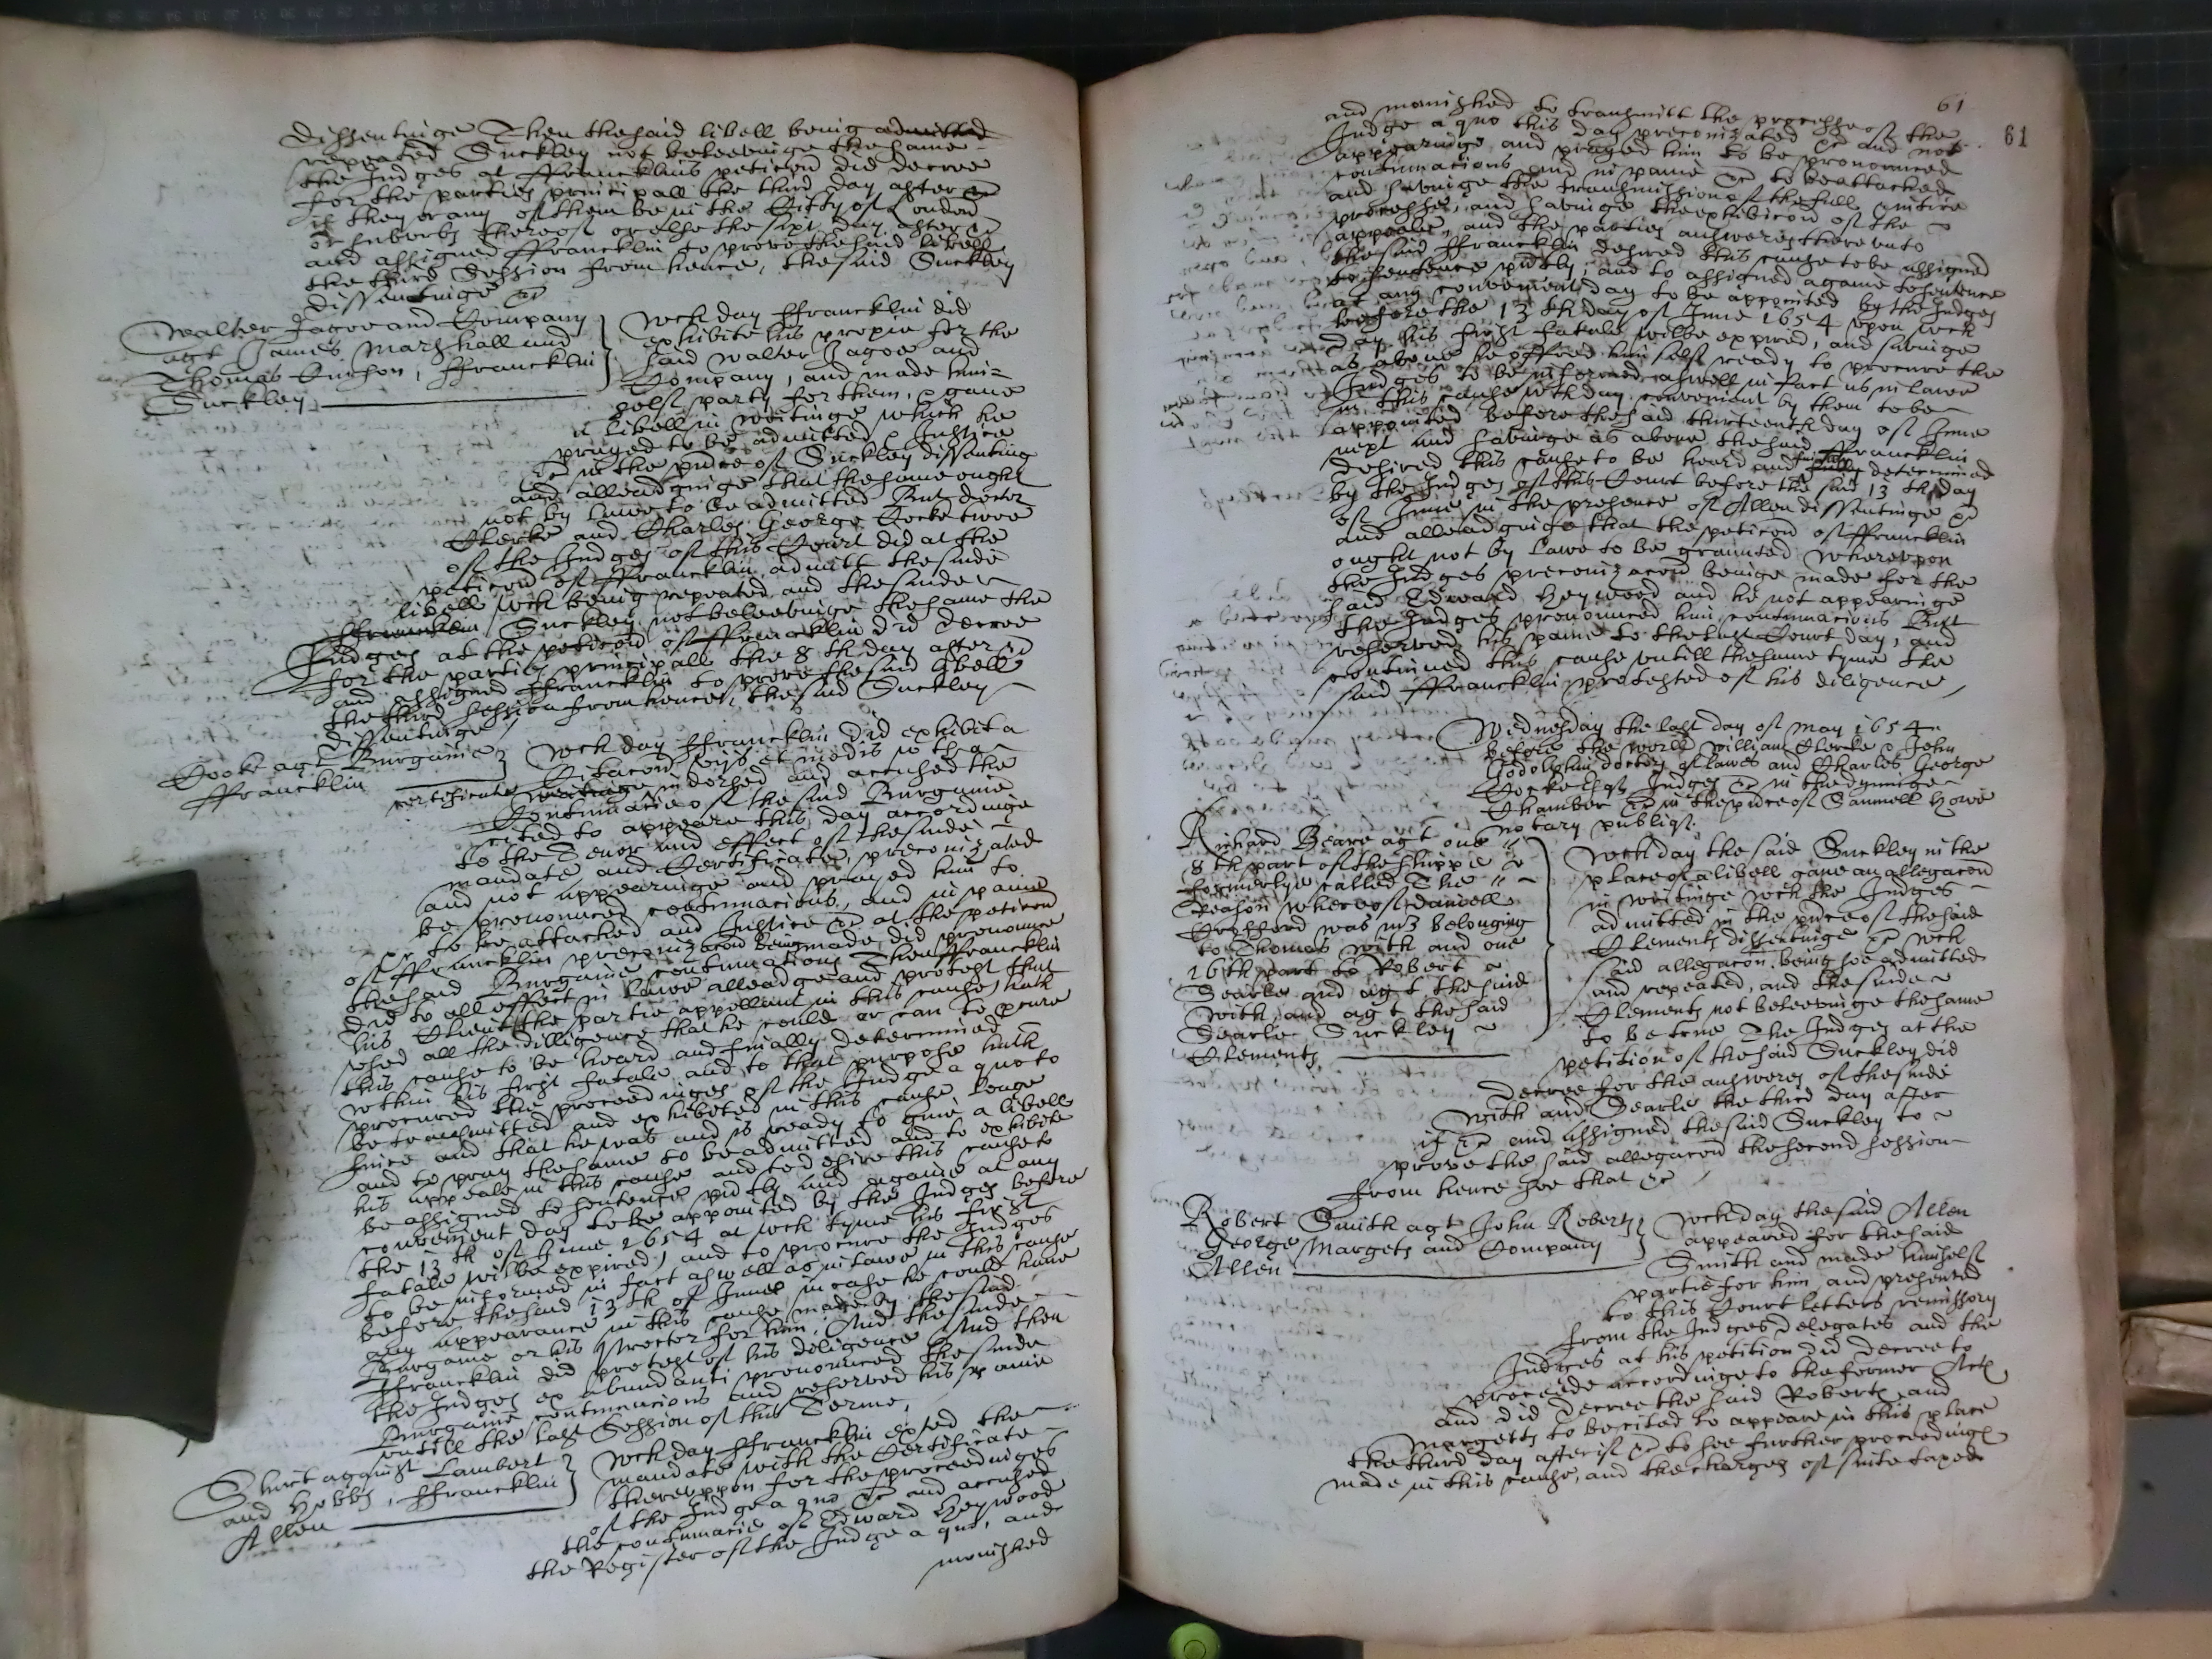 dissentinge Then the said libell being admitted
repeated Suckley not beleevinge the same
the Judges at ffrancklins peticon did decree
for the parties principall the third day after &c
if they or any of them be in the Citty of London
or suburbs thereof or else the sixt day after &c
and assigned ffrancklin to prove the said libell
the third Session from hence, the said Suckley
dissentinge &c
Walter Jagoe and Company
agt James Marshall and
Thomas , ffrancklin
Suckley
Wch day ffrancklin did
exhibite his proxie for the
said Walter Jagoe and
Company, and made him=
selfe party for them, & gave
a libell in writinge which he
prayed to be admitted & Justice
&c in the pnce of Suckley dissenting
and alleadginge that the same ought
not by lawe to be admitted But doctor
Clerke and Charles George Cocke twoe
of the Judges of this Court did at the
peticon of ffrancklin admitt the saide
libell wch being repeated and the saide
ffrancklin Suckley not beleevinge the same the
Judges at the peticon of ffrancklin did decree
for the parties principall the 8th day after &c
and assigned ffrancklin to prove the said libell
the third session from hence, the said Suckley
dissentinge
Cooke agt Burgaine
ffrancklin
Wch day ffrancklin did exhibit a
Citacon vijs et modis wth a
certificate writinge indorsed and accused the
Contumacie of the said Burgaine
cited to appeare this day accordinge
to the Tenor and effect of the saide
mandate and Certificate, preconizated
and not appearinge and prayed him to
be pronounced contumacious, and in paine
&c to be attached and Justice &c at the peticon
of ffrancklin preconizacon being made, did pronounce
the said Burgaine contumacious Then ffrancklin
did to all effect in lawe alleadge and protest that
his Client the partie appellant in this cause, hath
used all the dilligence that he could or can to pcure
this cause to be heard and finally determined
wthin his first fatale and to that purpose hath
procured the proceedinges of the Judge a quo to
be transmitted and exhibeted in this cause longe
since and that he was and is ready to give a libell
and to pray the same to be admitted and to exhibite
his appeale in this cause and to desire this cause to
be assigned to sentence pntly and againe at any
convenient day to be appointed by the Judges before
the 13th of June 1654 at wch tyme his first
fatale wilbe expired, and to procure the Judges
to be informed in fact as well as in lawe in this cause
before the said 13th of June in case he could have
any appearance in this cause made by the said
Burgaine or his proctor for him, And the saide
ffrancklin did protest of his diligence And then
the Judges ex abundanti pronounced the saide
Burgaine contumacious and reserved his paine
untill the last Session of this Terme,
Short against Lambert
and Hobbs, ffrancklin
Allen
Wch day ffrancklin exed the
mandate with the Certificate
thereuppon for the proceedinges
of the Judge a quo &c and accused
the contumacie of Edward Heywood
the Register of the Judge a quo, and
monished
61
61
and monished to transmitt the processe of the
Judge a quo this day preconizated &c and not
appearinge, and prayed him to be pronounced
contumacious and in paine &c to be attached
and havinge the transmission of the full intire
processe, and havinge the exhibicon of the
appeale, and the parties answeres thereunto
the said ffrancklin desired this cause to be assigned
to sentence pntly, and to assigned againe to sentence
at any convenient day to be appointed by the Judges
before the 13th day of June 1654 upon wch
day his first fatale wilbe expired, and savinge
as above he offred him selfe ready to procure the
Judges to be informed aswell in fact as in lawe
in this cause wth day convenient by them to be
appointed before the said thirteenth day of June
next and havinge as above the said ffrancklin
desired this cause to be heard and finally fully determined
by the Judges of this Court before the said 13th day
of June in the presence of Allen dissentinge &c
and alleadginge that the peticon of ffrancklin
ought not by lawe to be graunted Whereupon
the Judges preconizacon beinge made for the
said Edward Heywood and he not appearinge
the Judges pronounced him contumacious But
reserved his paine to the last Court day, and
continued this cause untill the same tyme the
said ffrancklin protested of his diligence,
Wednesday the last day of May 1654
before the worll William Clerke & John
Godolphin doctors of lawes and Charles George
Cocke Esqr Judges &c in the dyninge
Chamber &c in the pnce of Samuell Howe
notary publiq.
Richard Beare agt one
8th part of the shippe
formerlye called The
Reason whereof daniell
was mr belonging
to Thomas With and one
16th part to Robert
Searle and agt the said
With, and agt the said
Searle Suckley
Clements
Wch day the said Suckley in the
place of a libell gave an allegacon
in writinge wch the Judges
admitted in the pnce of the said
Clements dissentinge &c wch
said allegacon being soe admitted
and repeated, and the saide
Clements not beleevinge the same
to be true The Judges at the
petition of the said Suckley did
decree for the answeres of the saide
With and Searle the third day after
if &c and assigned the said Suckley to
prove the said allegacon the second session
from hence soe that &c
Robert Smith agt John Roberts
George Margets and Company
Allen
Wch day the said Allen
appeared for the said
Smith and made himselfe
partie for him and presented
to this Court letters remissory
from the Judges delegates and the
Judges at his petition did decree to
proceede accordinge to the former Acts
and did decree the said Roberts and
Margetts to be cited to appeare in this place
the third day after if &c to see further proceedings
made in this cause, and the charges of suite taxed